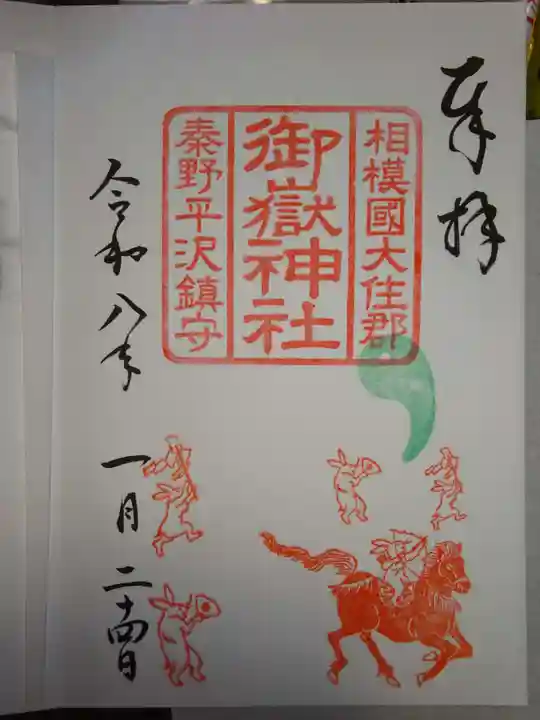 奉拝
相模國大住郡
御嶽神社
秦野平沢鎮守
令和八年 一月二十四日